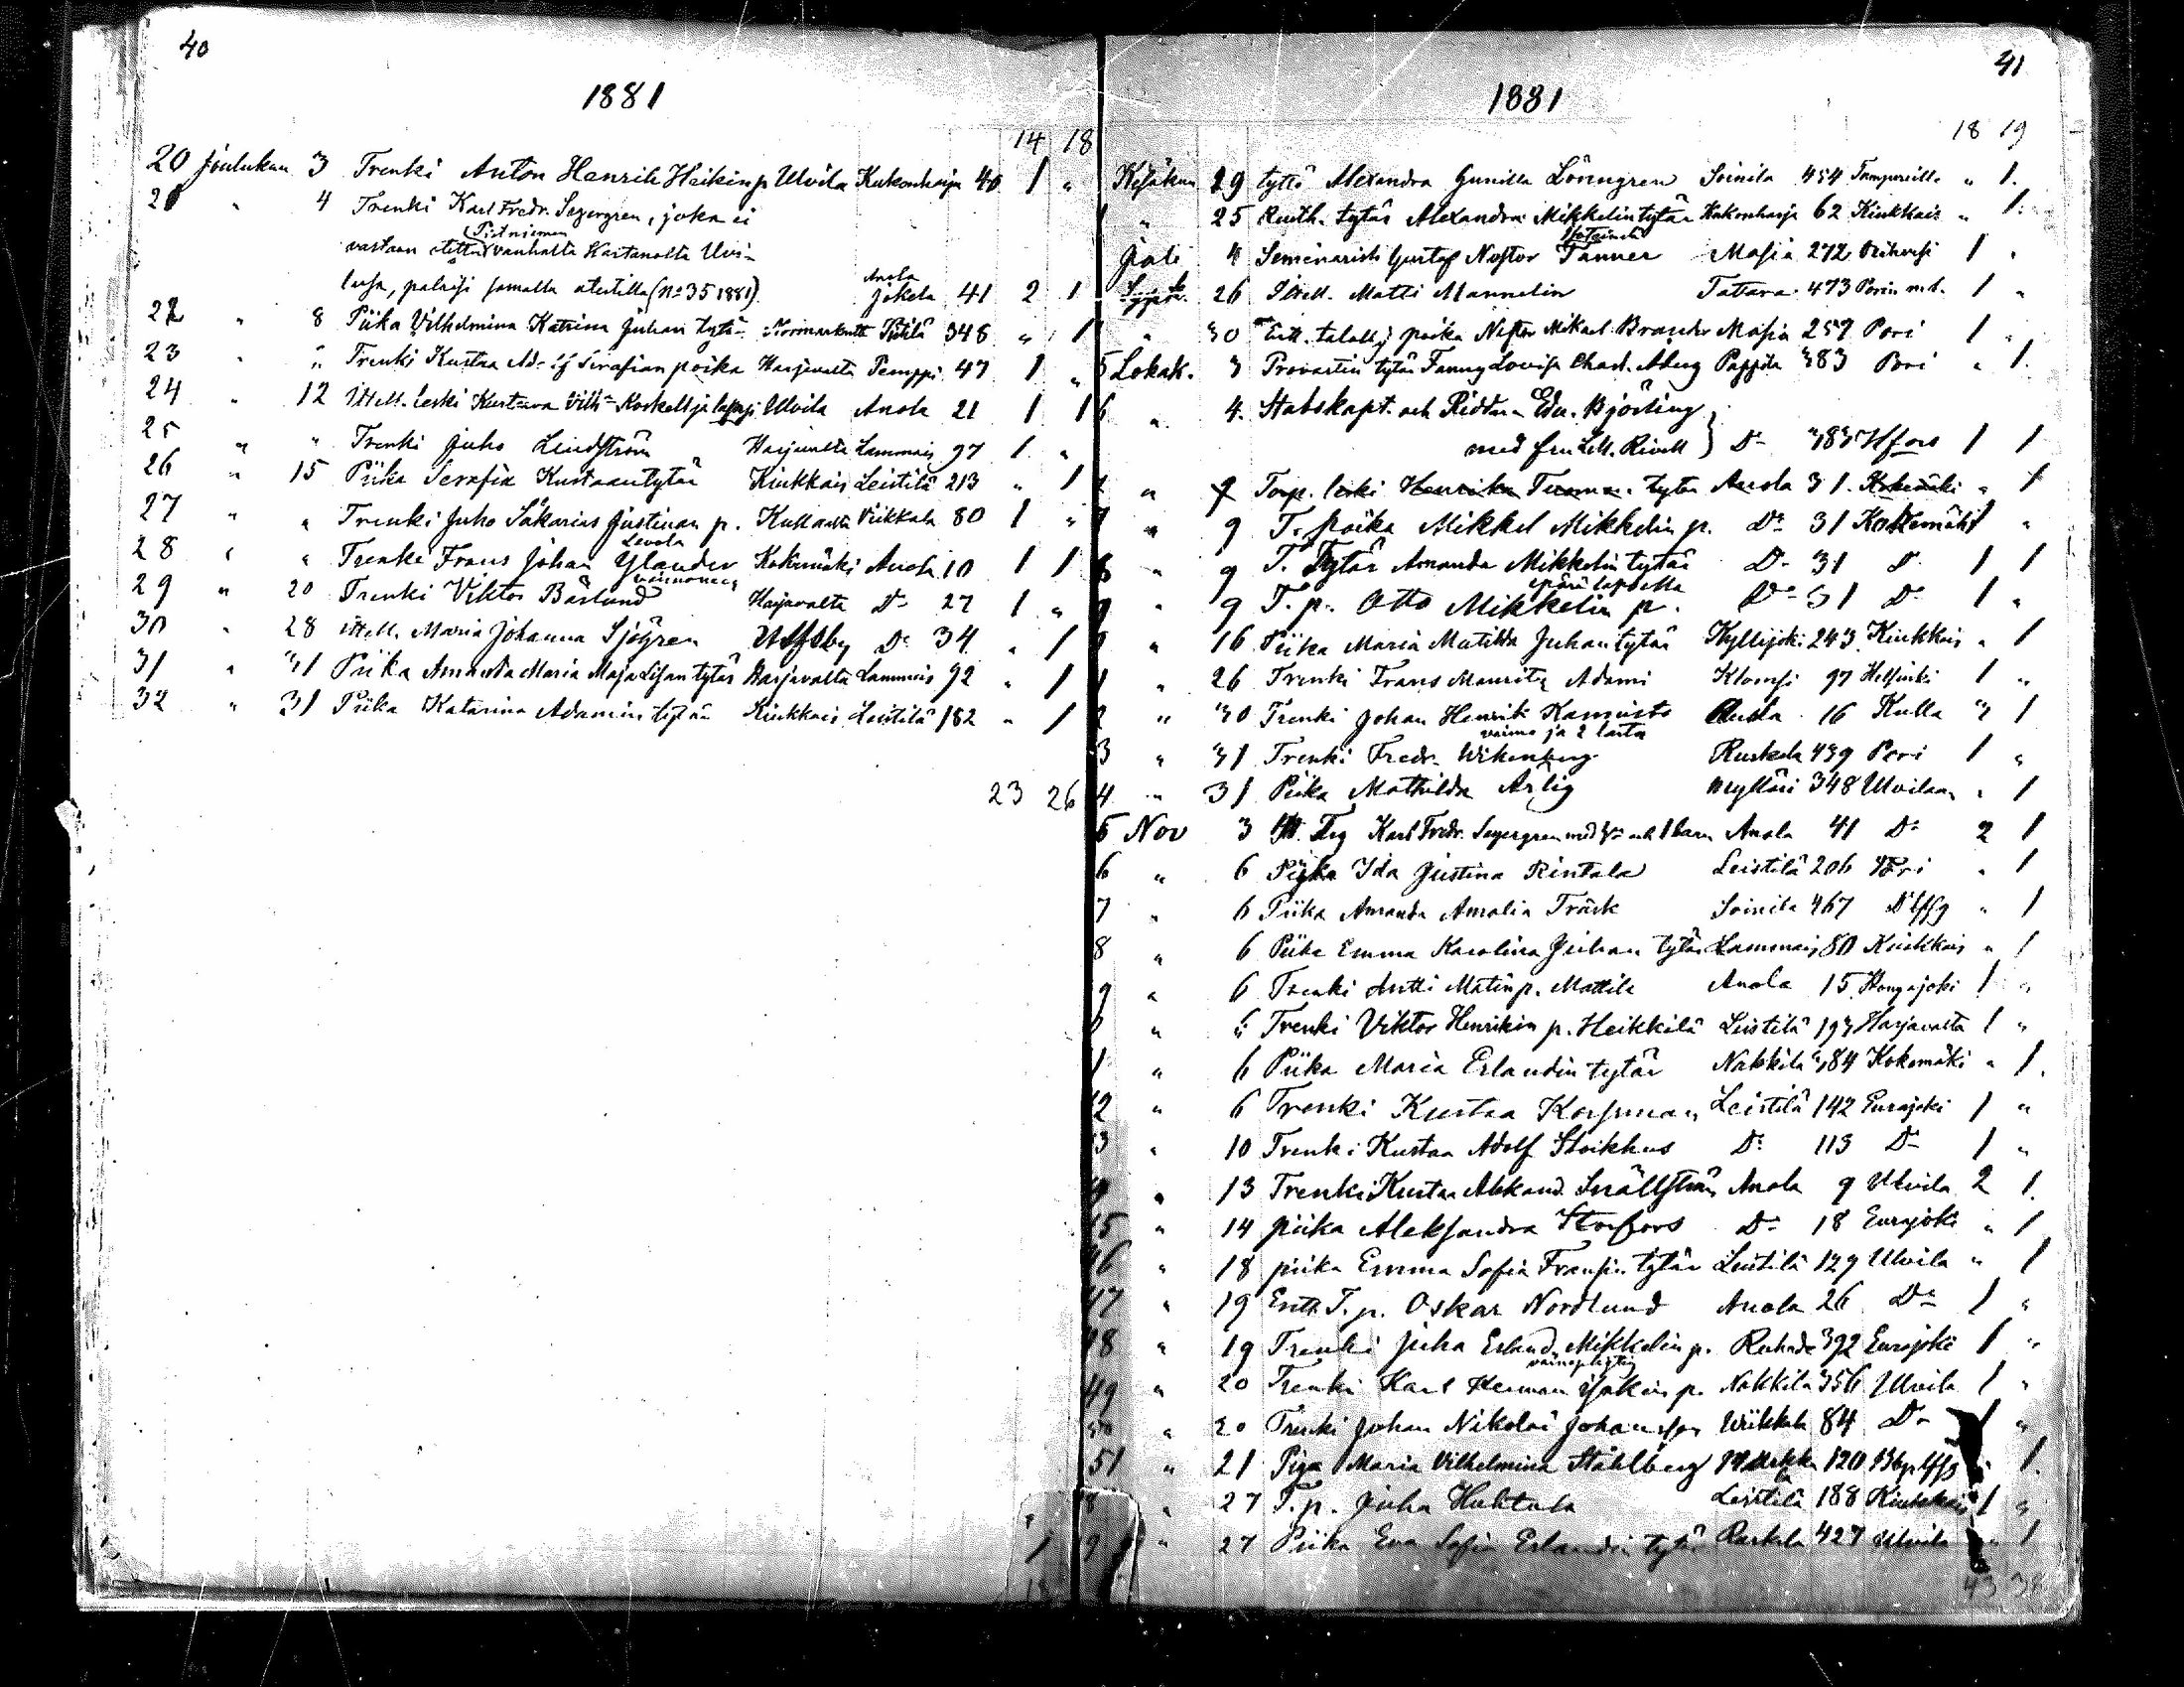 40
1881
14 18
20 Joulukuu 3 Trenki Anton Henrik Heikin p Ulvila Kukonharja 46 1 "
21 " 4 Trenki Karl Fredr. Segergren, joka ei
vastaan otettu vanhalta Kartanolta Ulvi-
lassa, palasi samalla atestilla (No 35 1881). Anola Jokela 41 2 1
22 " 8 Piika Vilhelmina Katrina Juhan tytär Normarkusta 348 " 1
23 " " Trenki Kustaa Ad. Serafian poika Harjavalta Pemppi 47 1 "
24 " 12 Itsell. leski Kustava Vilh. Koskell ja lapsi Ulvila Anola 21 1 1
25 " " Trenki Juho Lindström Harjavalta Lammais 97 1 "
26 " 15 Piika Serafia Kustaantytär Kiukkais Leistilä 213 " 1
27 " " Trenki Juho Sakarias Justinan p. Kullaalta Viikkala 80 1 "
28 " " Trenki Frans Johan Ylander Kokemäki Anola 10 1 1
29 " 20 Trenki Viktor Bärlund Harjavalta Do 27 1 "
30 " 28 Itsell. Maria Johanna Sjögren Ulfsby Do 34 " 1
31 " 31 Piika Amanda Maria Maja Lisan tytär Harjavalta Lammais 92 " 1
32 " 31 Piika Katarina Adamin tytär Kiukkais Leistilä 182 " 1
23 26
41
1881
18 19
Kesäkuu 29 tyttö Alexandra Gunilla Lönngren Soinila 454 Tampereille " 1.
" 25 Ruoth. tytär Alexandra Mikkelintytär Kukonharja 62 Kiukkais " 1.
4 Seminaristi Gustaf Nestor Tanner Masia 272 Orihvesi 1 "
26 Itsell. Matti Mannelin Tattara 473 Porin m.s. 1 "
" 30 Entt. taloll. poika Nestor Mikael Brander Masia 257 Pori 1 "
5 Lokak. 3 Provastin tytär Fanny Lovisa Charl. Åberg Pappila 383 Pori " 1.
6 " 4. Stabskapt. och Riddaren Edv. Björling
med fru Do 383 Hfors 1 1
" 9 Torp. leski Henrika Tuoman tytär Anola 31. Kokemäki " 1
7 " 9 T. poika Mikkel Mikkelin p. Do 31 Kokemäki 1 "
8 " 9 T. Tytär Amanda Mikkelin tytär Do 31 Do 1 1
9 " 9 T. p. Otto Mikkelin p. Do 31 Do 1 "
" 16 Piika Maria Matilda Juhan tytär Kyllijoki 243 Kiukkais " 1
1 " 26 Trenki Frans Mauritz Adami Klomsi 97 Helsinki 1 "
2 " 30 Trenki Johan Henrik Kannisto Anola 16 Kulla 3 1
vaimo ja 2 lasta
3 " 31 Trenki Fredr. Wikenberg Ruskela 439 Pori 1 "
4 " 31 Piika Mathilda Arlig 348 Ulvilaan " 1
5 Nov 3 Karl Fredr. Segergren med och 1 barn Anola 41 Do 2 1
6 " 6 Piika Ida Justina Rintala Leistilä 206 Pori " 1
7 " 6 Piika Amanda Amalia Träsk Soinila 467 " 1
8 " 6 Piika Emma Karolina Juhan tytär Lammais 80 Kiukkais " 1
9 " 6 Trenki Antti Matin p. Mattila Anola 15 Pomarjoki 1 "
" 6 Trenki Viktor Henrikin p. Heikkilä Leistilä 193 Harjavalta 1 "
1 " 6 Piika Maria Erlandin tytär Nakkila 384 Kokemäki " 1.
2 " 6 Trenki Kustaa Korsman Leistilä 142 Eurajoki 1 "
3 " 10 Trenki Kustaa Adolf Stoikkus Do 113 Do 1 "
" 13 Trenki Kustaa Aleksand. Snällström Anola 9 Ulvila 2 1.
45 " 14 piika Aleksandra Storfors Do 18 Eurajoki " 1
46 " 18 piika Emma Sofia Fransin tytär Leistilä 129 Ulvila " 1
47 " 19 Entt. T. p. Oskar Nordlund Anola 26 Do 1 "
48 " 19 Trenki Juha Erland Mikkelin p. Ruskela 392 Eurajoki 1 "
49 " 20 Trenki Karl Herman Isakin p. Nakkila 356 Ulvila 1 "
50 " 20 Trenki Johan Nikolai Johansson Wiikkala 84 Do 1 "
51 " 21 Piga Maria Vilhelmina Ståhlberg 120 " 1.
" 27 T. p. Juha Huhtala Leistilä 188 Kiukkais 1 "
" 27 Piika Eva Sofia Erlandin tytär Ruskela 427 Ulvila " 1
43 38